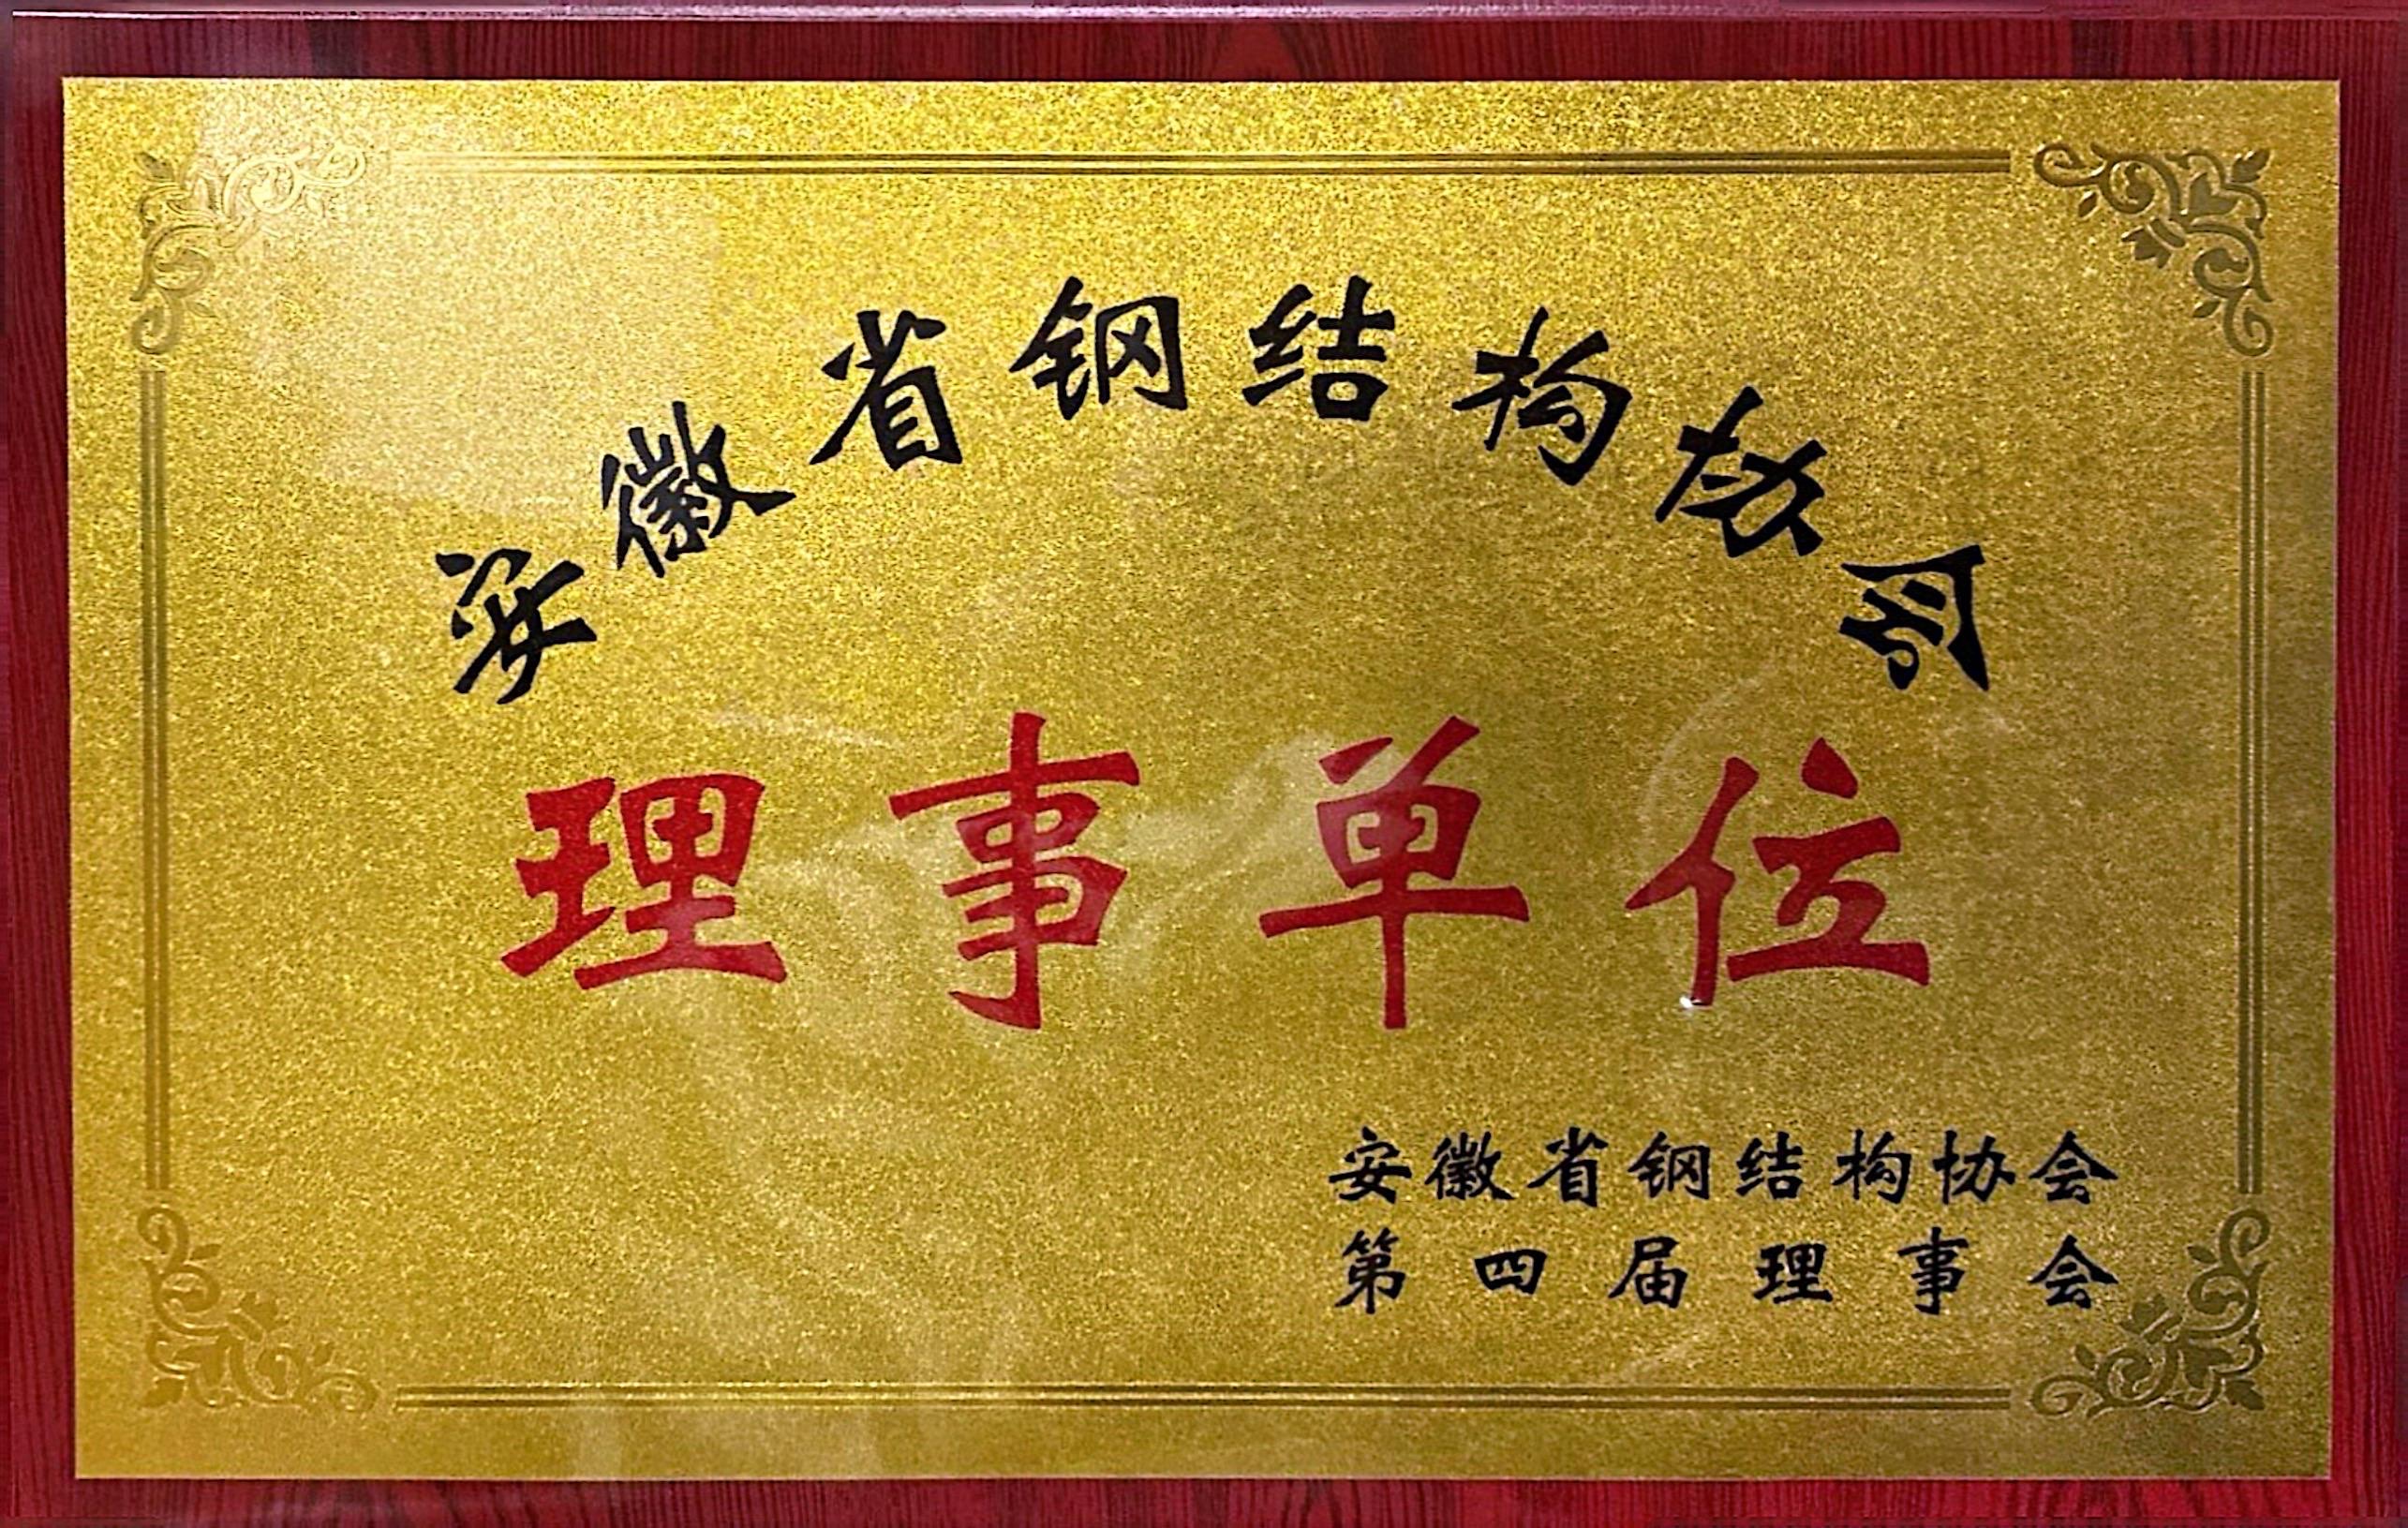 安徽省钢结构协会
理事单位
安徽省钢结构协会
第四届理事会